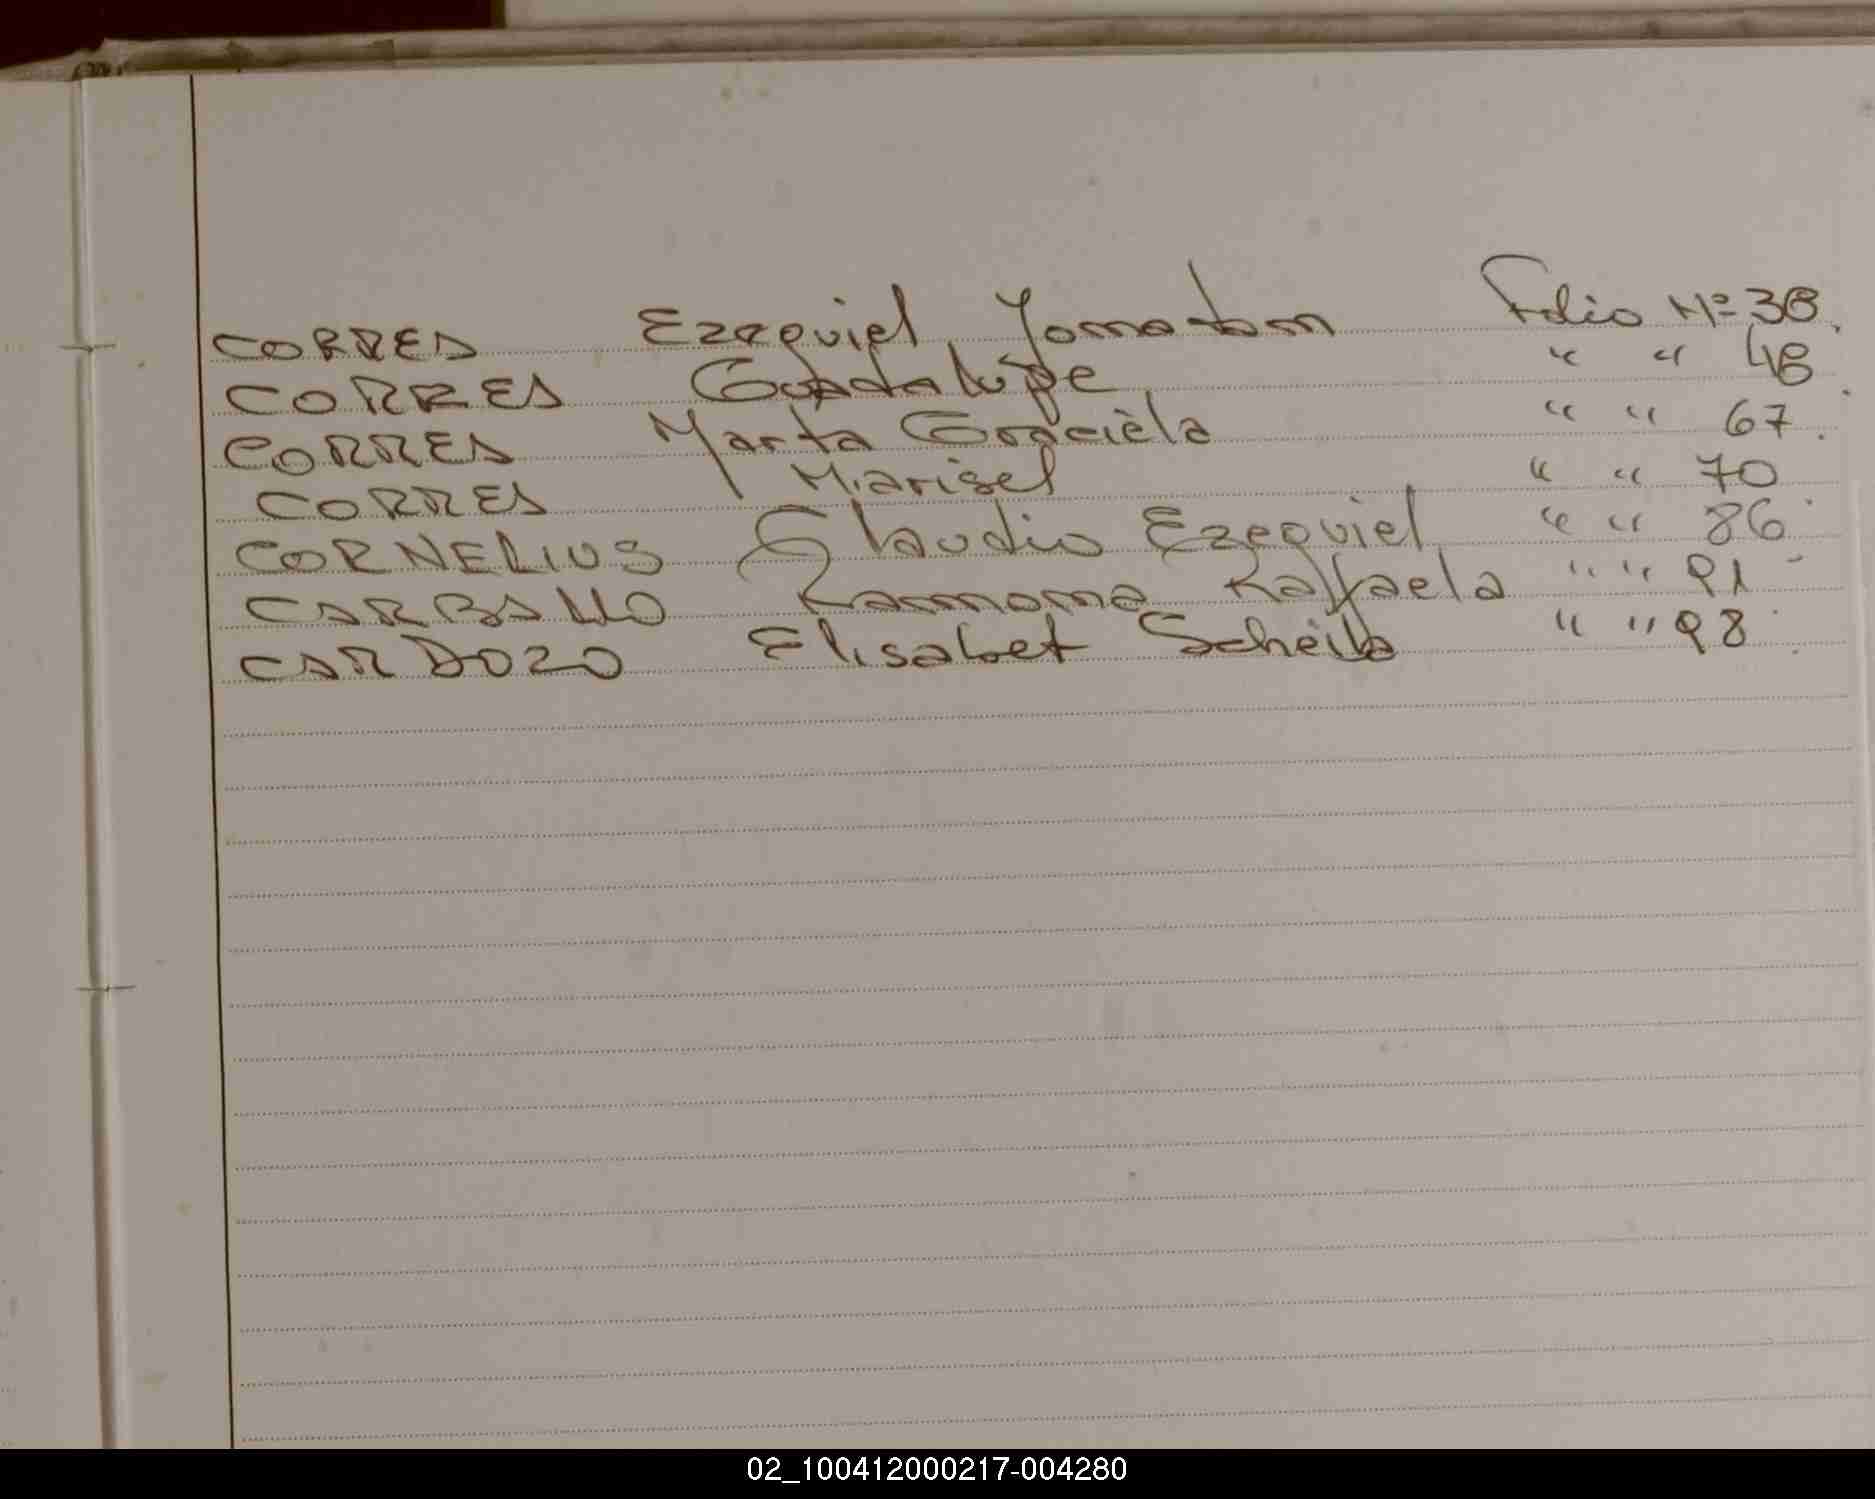 CORRES Ezequiel Yonatan Folio Nº 38.
CORRES Guadalupe " " 48
CORRES Marta Graciela " " 67.
CORRES Marisel " " 70
CORNELIUS Claudio Ezequiel " " 86
CARBALLO Raffaela " " 91
CARDOZO Elisabet Scheila " " 98
02_100412000217-004280